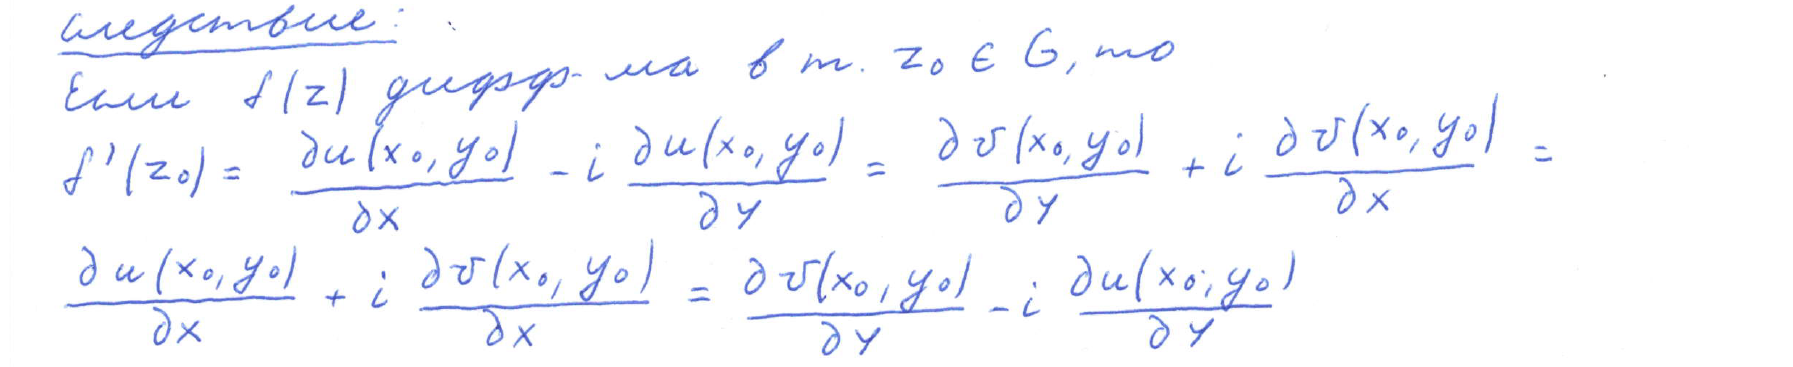 следствие:
Если f(z) дифф-ма в т. z₀ ∈ G, то
f'(z₀) = ∂u(x₀, y₀)/∂x - i ∂u(x₀, y₀)/∂y = ∂v(x₀, y₀)/∂y + i ∂v(x₀, y₀)/∂x =
∂u(x₀, y₀)/∂x + i ∂v(x₀, y₀)/∂x = ∂v(x₀, y₀)/∂y - i ∂u(x₀, y₀)/∂y